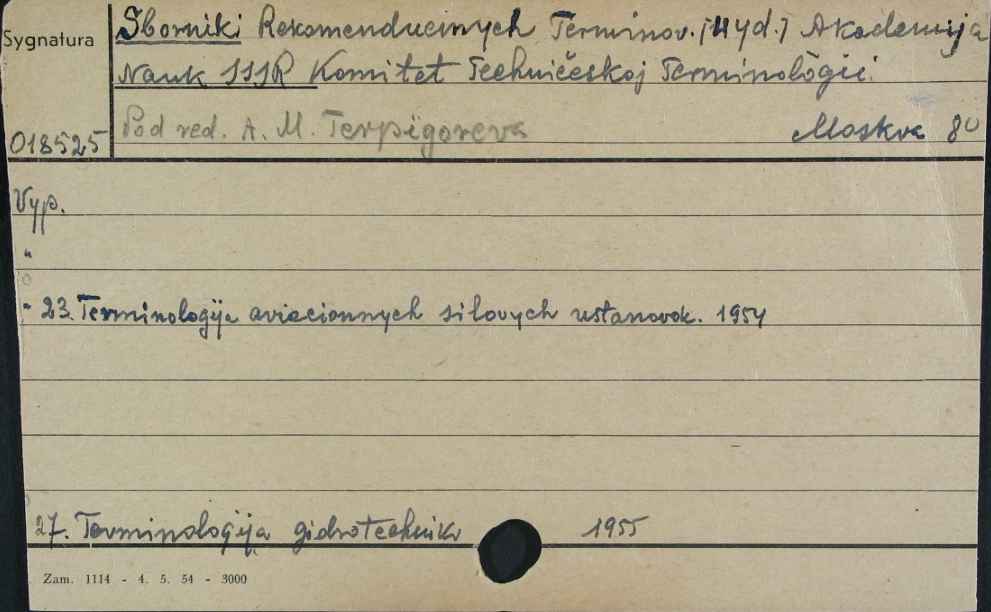 Sygnatura
Sborniki Rekomenduemych Terminov. [Wyd.] Akademija
Nauk SSSR Komitet Techničeskoj Terminologii.
018525
Pod red. A. M. Terpigoreva Moskva 8°
Vyp.
"
"
" 23. Terminologija aviacionnych silovych ustanovok. 1954
27. Terminologija gidrotechniki 1955
Zam. 1114 - 4. 5. 54 - 3000